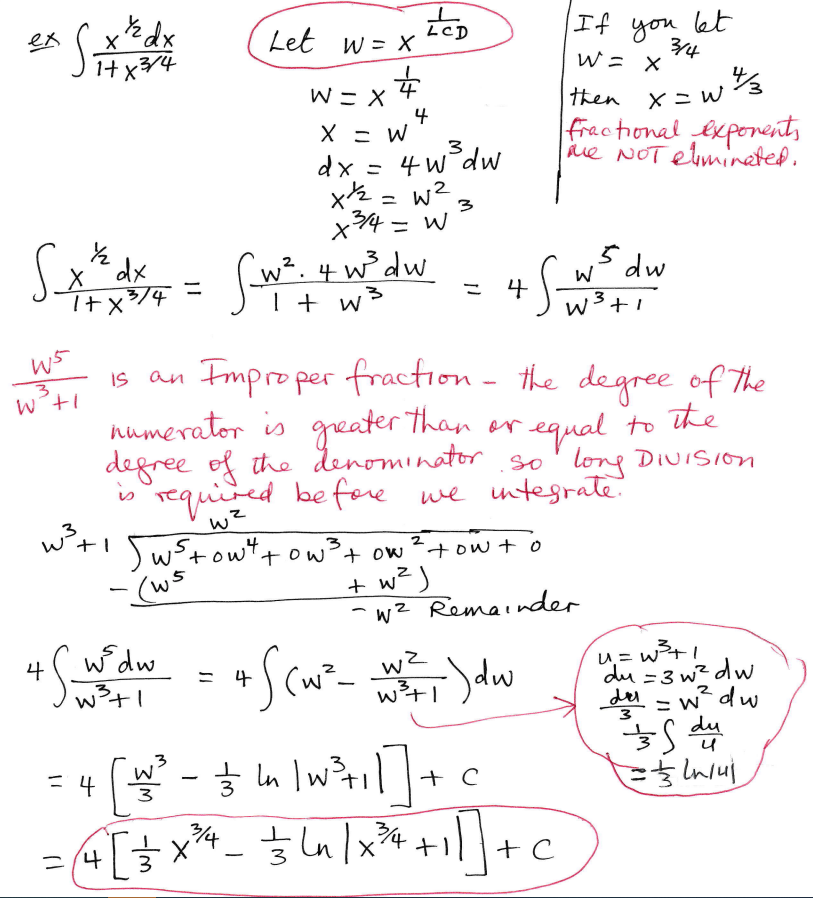 ex ∫ x^½ dx / 1 + x^3/4
Let w = x^(1/LCD)
w = x^(1/4)
x = w^4
dx = 4w^3 dw
x^½ = w^2
x^3/4 = w^3
If you let
w = x^3/4
then x = w^4/3
fractional exponents
are NOT eliminated.
∫ x^½ dx / 1 + x^3/4 = ∫ w^2 · 4w^3 dw / 1 + w^3 = 4 ∫ w^5 dw / w^3 + 1
w^5 / w^3 + 1 is an Improper fraction – the degree of the
numerator is greater than or equal to the
degree of the denominator so long DIVISION
is required before we integrate.
w^2
w^3 + 1 ) w^5 + 0w^4 + 0w^3 + 0w^2 + 0w + 0
- (w^5 + w^2)
- w^2 Remainder
4 ∫ w^5 dw / w^3 + 1 = 4 ∫ (w^2 - w^2 / w^3 + 1) dw
u = w^3 + 1
du = 3w^2 dw
du/3 = w^2 dw
1/3 ∫ du/u
= 1/3 ln|u|
= 4 [ w^3/3 - 1/3 ln |w^3 + 1| ] + C
= 4 [ 1/3 x^3/4 - 1/3 ln |x^3/4 + 1| ] + C